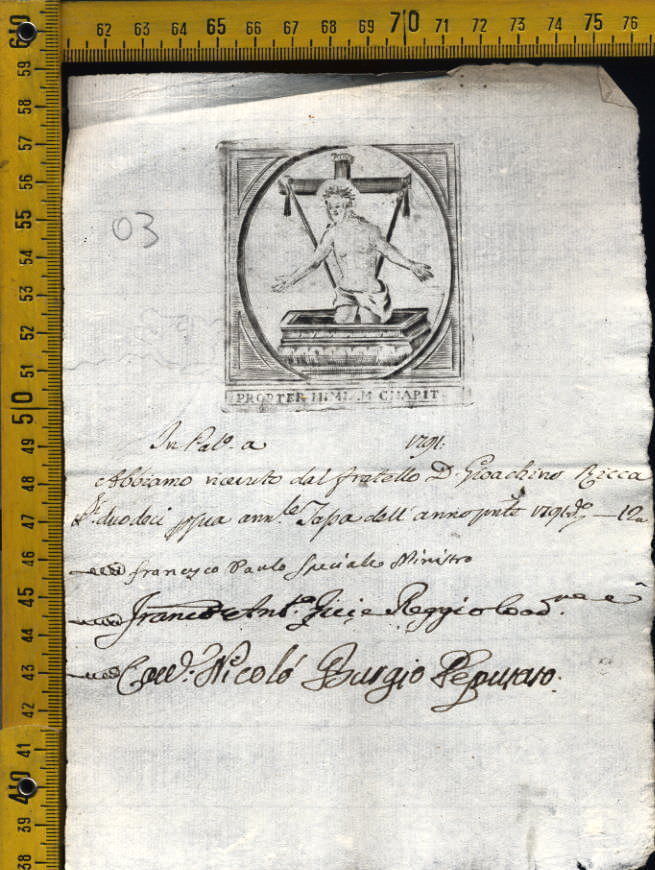 62 63 64 65 66 67 68 69 70 71 72 73 74 75 76
60 59 58 57 56 55 54 53 52 51 50 49 48 47 46 45 44 43 42 41 40 39 38
03
PROPTER NIMIAM CHARIT
In Pal.º a 1791.
Abbiamo ricevuto dal fratello D. Gioachino Ricca
duodeci ann.le Tapa dell'anno pnte 1791 12
Francesco Paulo Speciale Ministro
Franco Ant.º Reggio
Nicolò Burgio